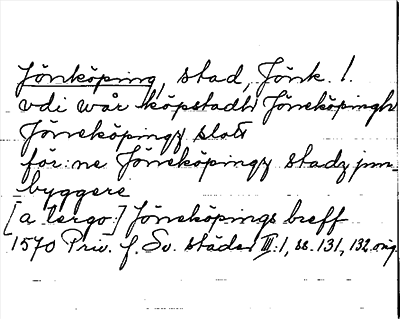 Jönköping, stad, Jönk. l.
vdi wår köpstadh Jöneköpingh
Jöneköpingz slott
för:ne Jöneköpingz stadz jnn-
byggere
[a tergo:] Jöneköpings breff
1570 Priv. f. Sv. städer III:1, ss. 131, 132. orig.